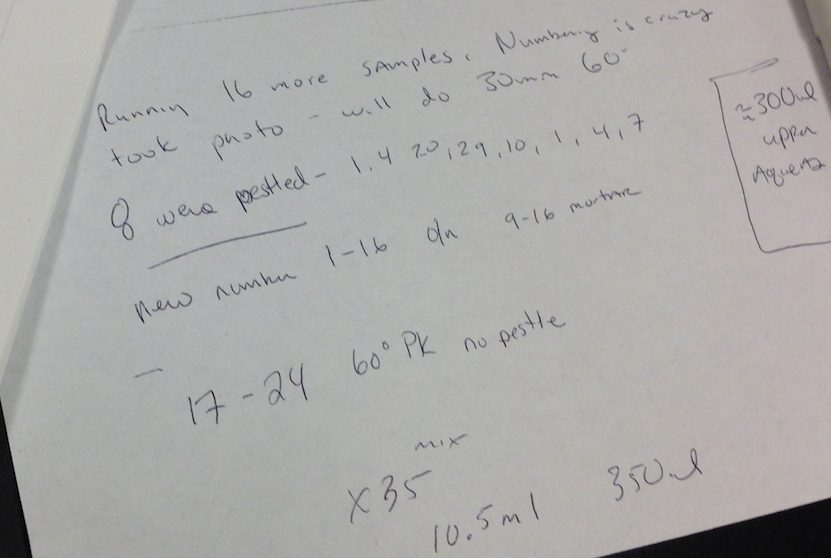 Running 16 more samples. Numbering is crazy
took photo - will do 30min 60°
8 were pestled - 1, 4 20, 29, 10, 1, 4, 7
new number 1-16 9-16 mortar
- 17-24 60° PK no pestle
mix
x35
10.5ml 350ul
≈300ul
upper
Aqueous